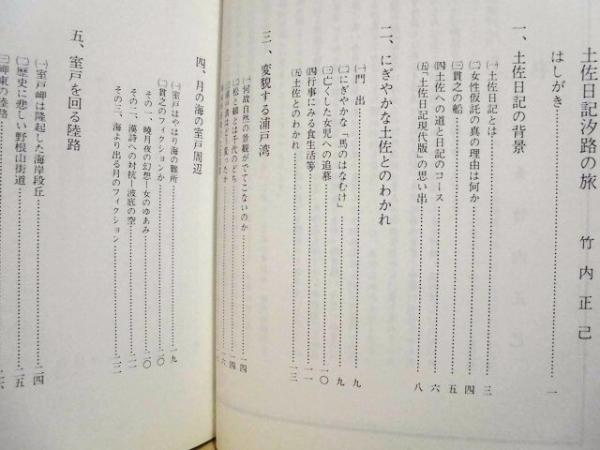 土佐日記汐路の旅 竹内正己
はしがき……一
一、土佐日記の背景
㈠土佐日記とは……三
㈡女性仮託の真の理由は何か……四
㈢貫之の船……五
㈣土佐への道と日記のコース……六
㈤「土佐日記現代版」の思い出……八
二、にぎやかな土佐とのわかれ
㈠門出……九
㈡にぎやかな「馬のはなむけ」……九
㈢亡くした女児への追慕……一〇
㈣行事にみる食生活等……一一
㈤土佐とのわかれ……一三
三、変貌する浦戸湾
㈠何故自然の景観がでてこないのか……一四
㈡松と鶴とは千代のどち……一四
四、月の海の室戸周辺
㈠室戸はやはり海の難所……一九
㈡貫之のフィクションか……二〇
その一、暁月夜の幻想―女のゆあみ……二〇
その二、漢詩への対抗―波底の空……二一
その三、海より出る月のフィクション……二二
五、室戸を回る陸路
㈠室戸岬は隆起した海岸段丘……二四
㈡歴史に悲しい野根山街道……二五
㈢岬東の陸路……二六